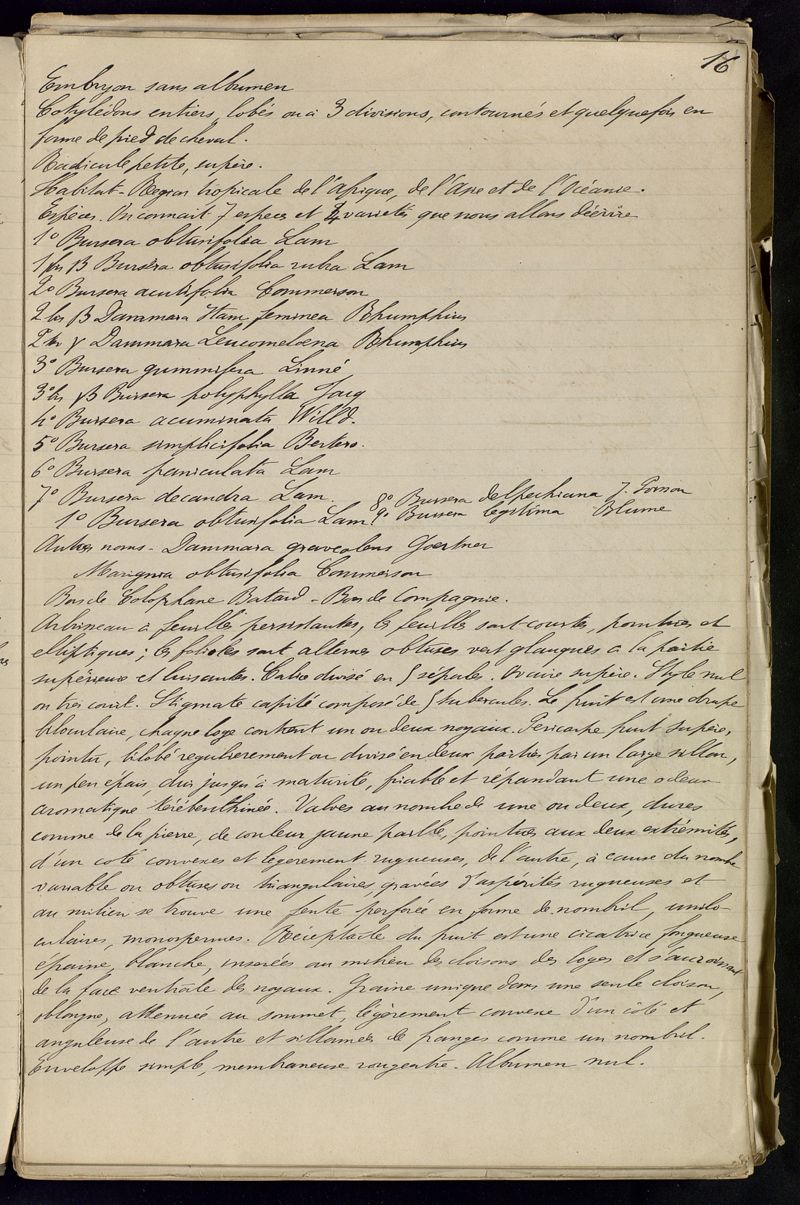 16
Embryon sans albumen
Cotylédons entiers, lobés ou à 3 divisions, contournés et quelquefois en
forme de pied de cheval.
Radicule petite, supère.
Habitat - Region tropicale de l'Afrique, de l'Asie et de l'Océanie.
Espèces. On connait 7 espèces et 4 varietés que nous allons décrire
1° Bursera obtusifolia Lam
1 bis β Bursera obtusifolia rubra Lam
2° Bursera acutifolia Commerson
2 bis β Dammara Ham feminea Rhumphius
2 ter γ Dammara Leucomelaena Rhumphius
3° Bursera gummifera Linné
3° bis β Bursera polyphylla Jacq
4° Bursera acuminata Willd.
5° Bursera simplicifolia Bertero.
6° Bursera paniculata Lam
7° Bursera decandra Lam. 8° Bursera delpechiana J. Poisson
1° Bursera obtusifolia Lam 9° Bursera legitima Blume
Autres noms - Dammara graveolens Goertner
Marignia obtusifolia Commerson
Bois de Colophane Batard - Bois de Compagnie.
Arbrisseau à feuilles persistantes, les feuilles sont courtes, pointues et
elliptiques; les folioles sont alternes obtuses vert glauques à la partie
supérieure et luisantes. Calice divisé en 5 sépales. Ovaire supère. Style nul
ou très court. Stigmate capité composé de 5 tubercules. Le fruit est une drupe
biloculaire, chaque loge contient un ou deux noyaux. Pericarpe fruit supère,
pointu, bilobé regulierement ou divisé en deux parties par un large sillon,
un peu épais, dur jusqu'à maturité, friable et répandant une odeur
aromatique térébenthinée. Valves au nombre de une ou deux, dures
comme de la pierre, de couleur jaune paille, pointues aux deux extrémités,
d'un coté convexes et légerement rugueuses, de l'autre, à cause du nombre
variable ou obtuses ou triangulaires, gravées d'aspérités rugueuses et
au milieu se trouve une fente perforée en forme de nombril, unilo-
culaires, monospermes. Réceptacle du fruit est une cicatrice fongueuse
épaisse, blanche, insérée au milieu des cloisons des loges et s'accroissant
de la face ventrale des noyaux. Graine unique dans une seule cloison,
oblongue, attenuée au sommet, légèrement convexe d'un côté et
anguleuse de l'autre et sillonnée de franges comme un nombril.
Enveloppe simple, membraneuse rougeatre. Albumen nul.